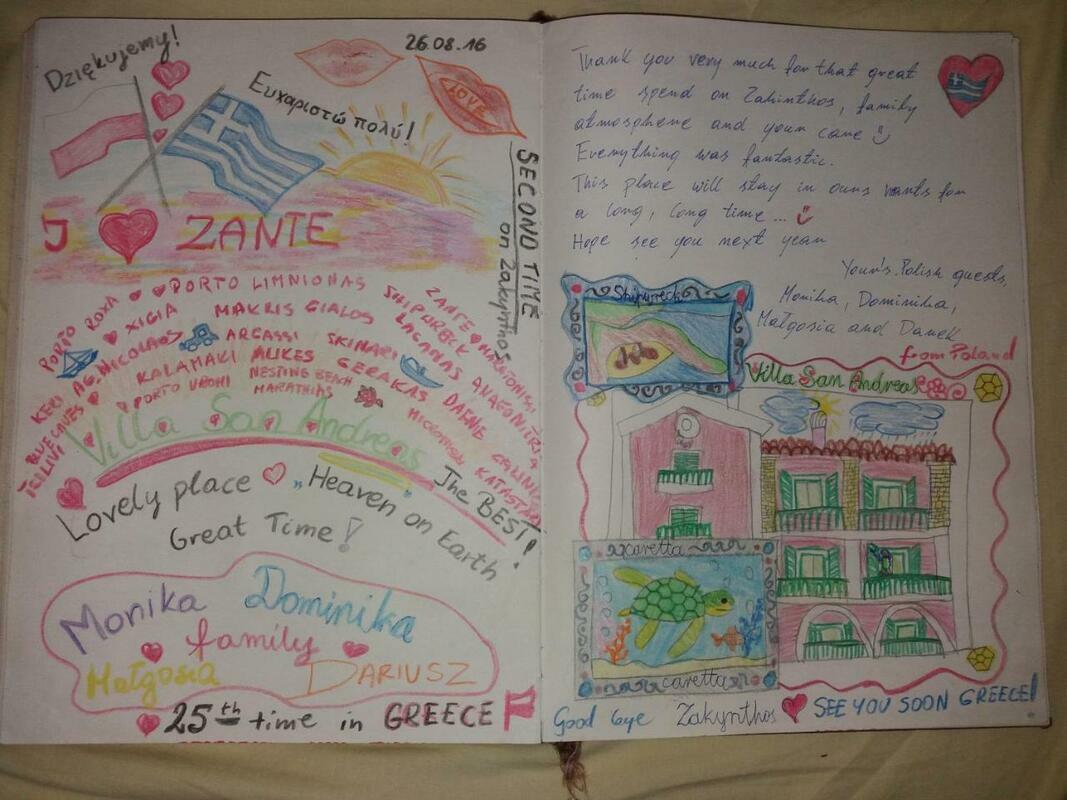 Dziękujemy!
26.08.16
LOVE
Ευχαριστώ πολύ!
SECOND TIME
on Zakynthos
I ZANTE
PORTO LIMNIONAS
PORTO ROXA
XIGIA
MAKRIS GIALOS
SHIPWRECK
ZANTE
MARATONISSI
KERI
AG. NICOLAOS
ARGASSI
SKINARI
LAGANAS
KALAMAKI
ALIKES
GERAKAS
DAFNE
BLUE CAVES
PORTO VROMI
NESTING BEACH
MARATHIAS
TSILIVI
KATASTARI
Villa San Andreas
Lovely place "Heaven on Earth"
The BEST!
Great Time!
Monika Dominika
family
Małgosia DARIUSZ
25th time in GREECE
Thank you very much for that great
time spend on Zakinthos, family
atmosphere and your care
Everything was fantastic.
This place will stay in ours hearts for
a long, long time ...
Hope see you next year
Your's Polish guests,
Monika, Dominika,
Małgosia and Darek
from Poland
Shipwreck
Villa San Andreas
caretta
caretta
Good bye Zakynthos SEE YOU SOON GREECE!